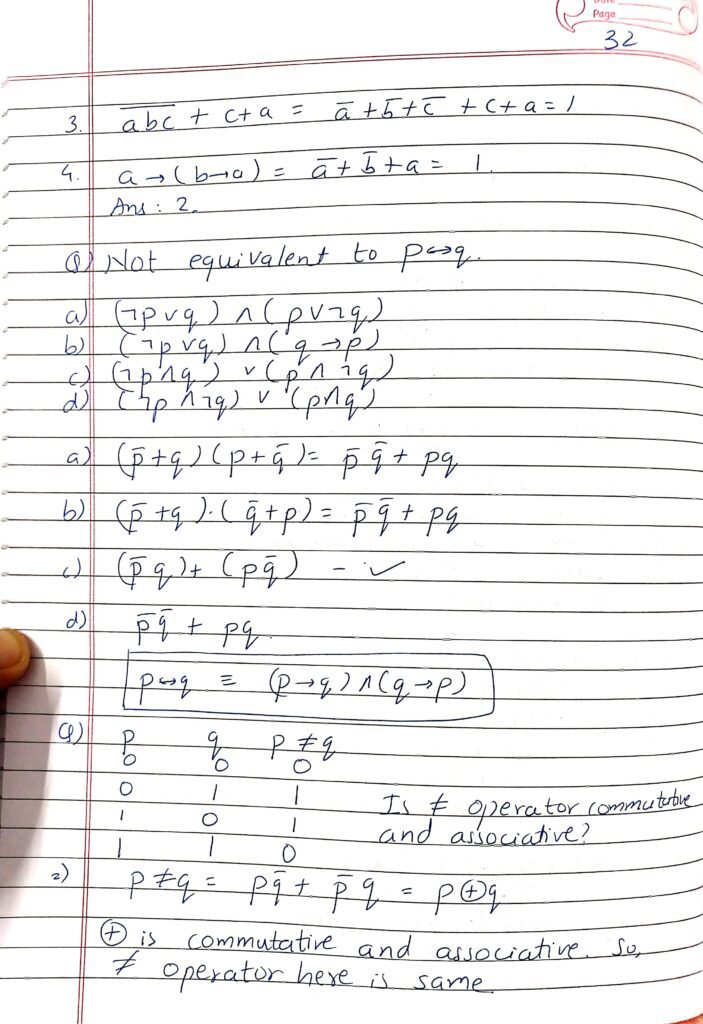 Page
32
3. a̅b̅c̅ + c+a = a̅ + b̅ + c̅ + c + a = 1
4. a → (b→a) = a̅ + b̅ + a = 1.
Ans : 2.
Q) Not equivalent to p↔q.
a) (¬p∨q) ∧ (p∨¬q)
b) (¬p∨q) ∧ (q→p)
c) (¬p∧q) ∨ (p∧¬q)
d) (¬p∧¬q) ∨ (p∧q)
a) (p̅+q)(p+q̅) = p̅ q̅ + pq
b) (p̅+q).(q̅+p) = p̅ q̅ + pq
c) (p̅ q) + (pq̅) - ✓
d) p̅ q̅ + pq.
p↔q ≡ (p→q) ∧ (q→p)
Q) p q p ≠ q
0 0 0
0 1 1
1 0 1
1 1 0
Is ≠ operator commutative
and associative?
=) p ≠ q = pq̅ + p̅ q = p ⊕ q
⊕ is commutative and associative. So,
≠ operator here is same